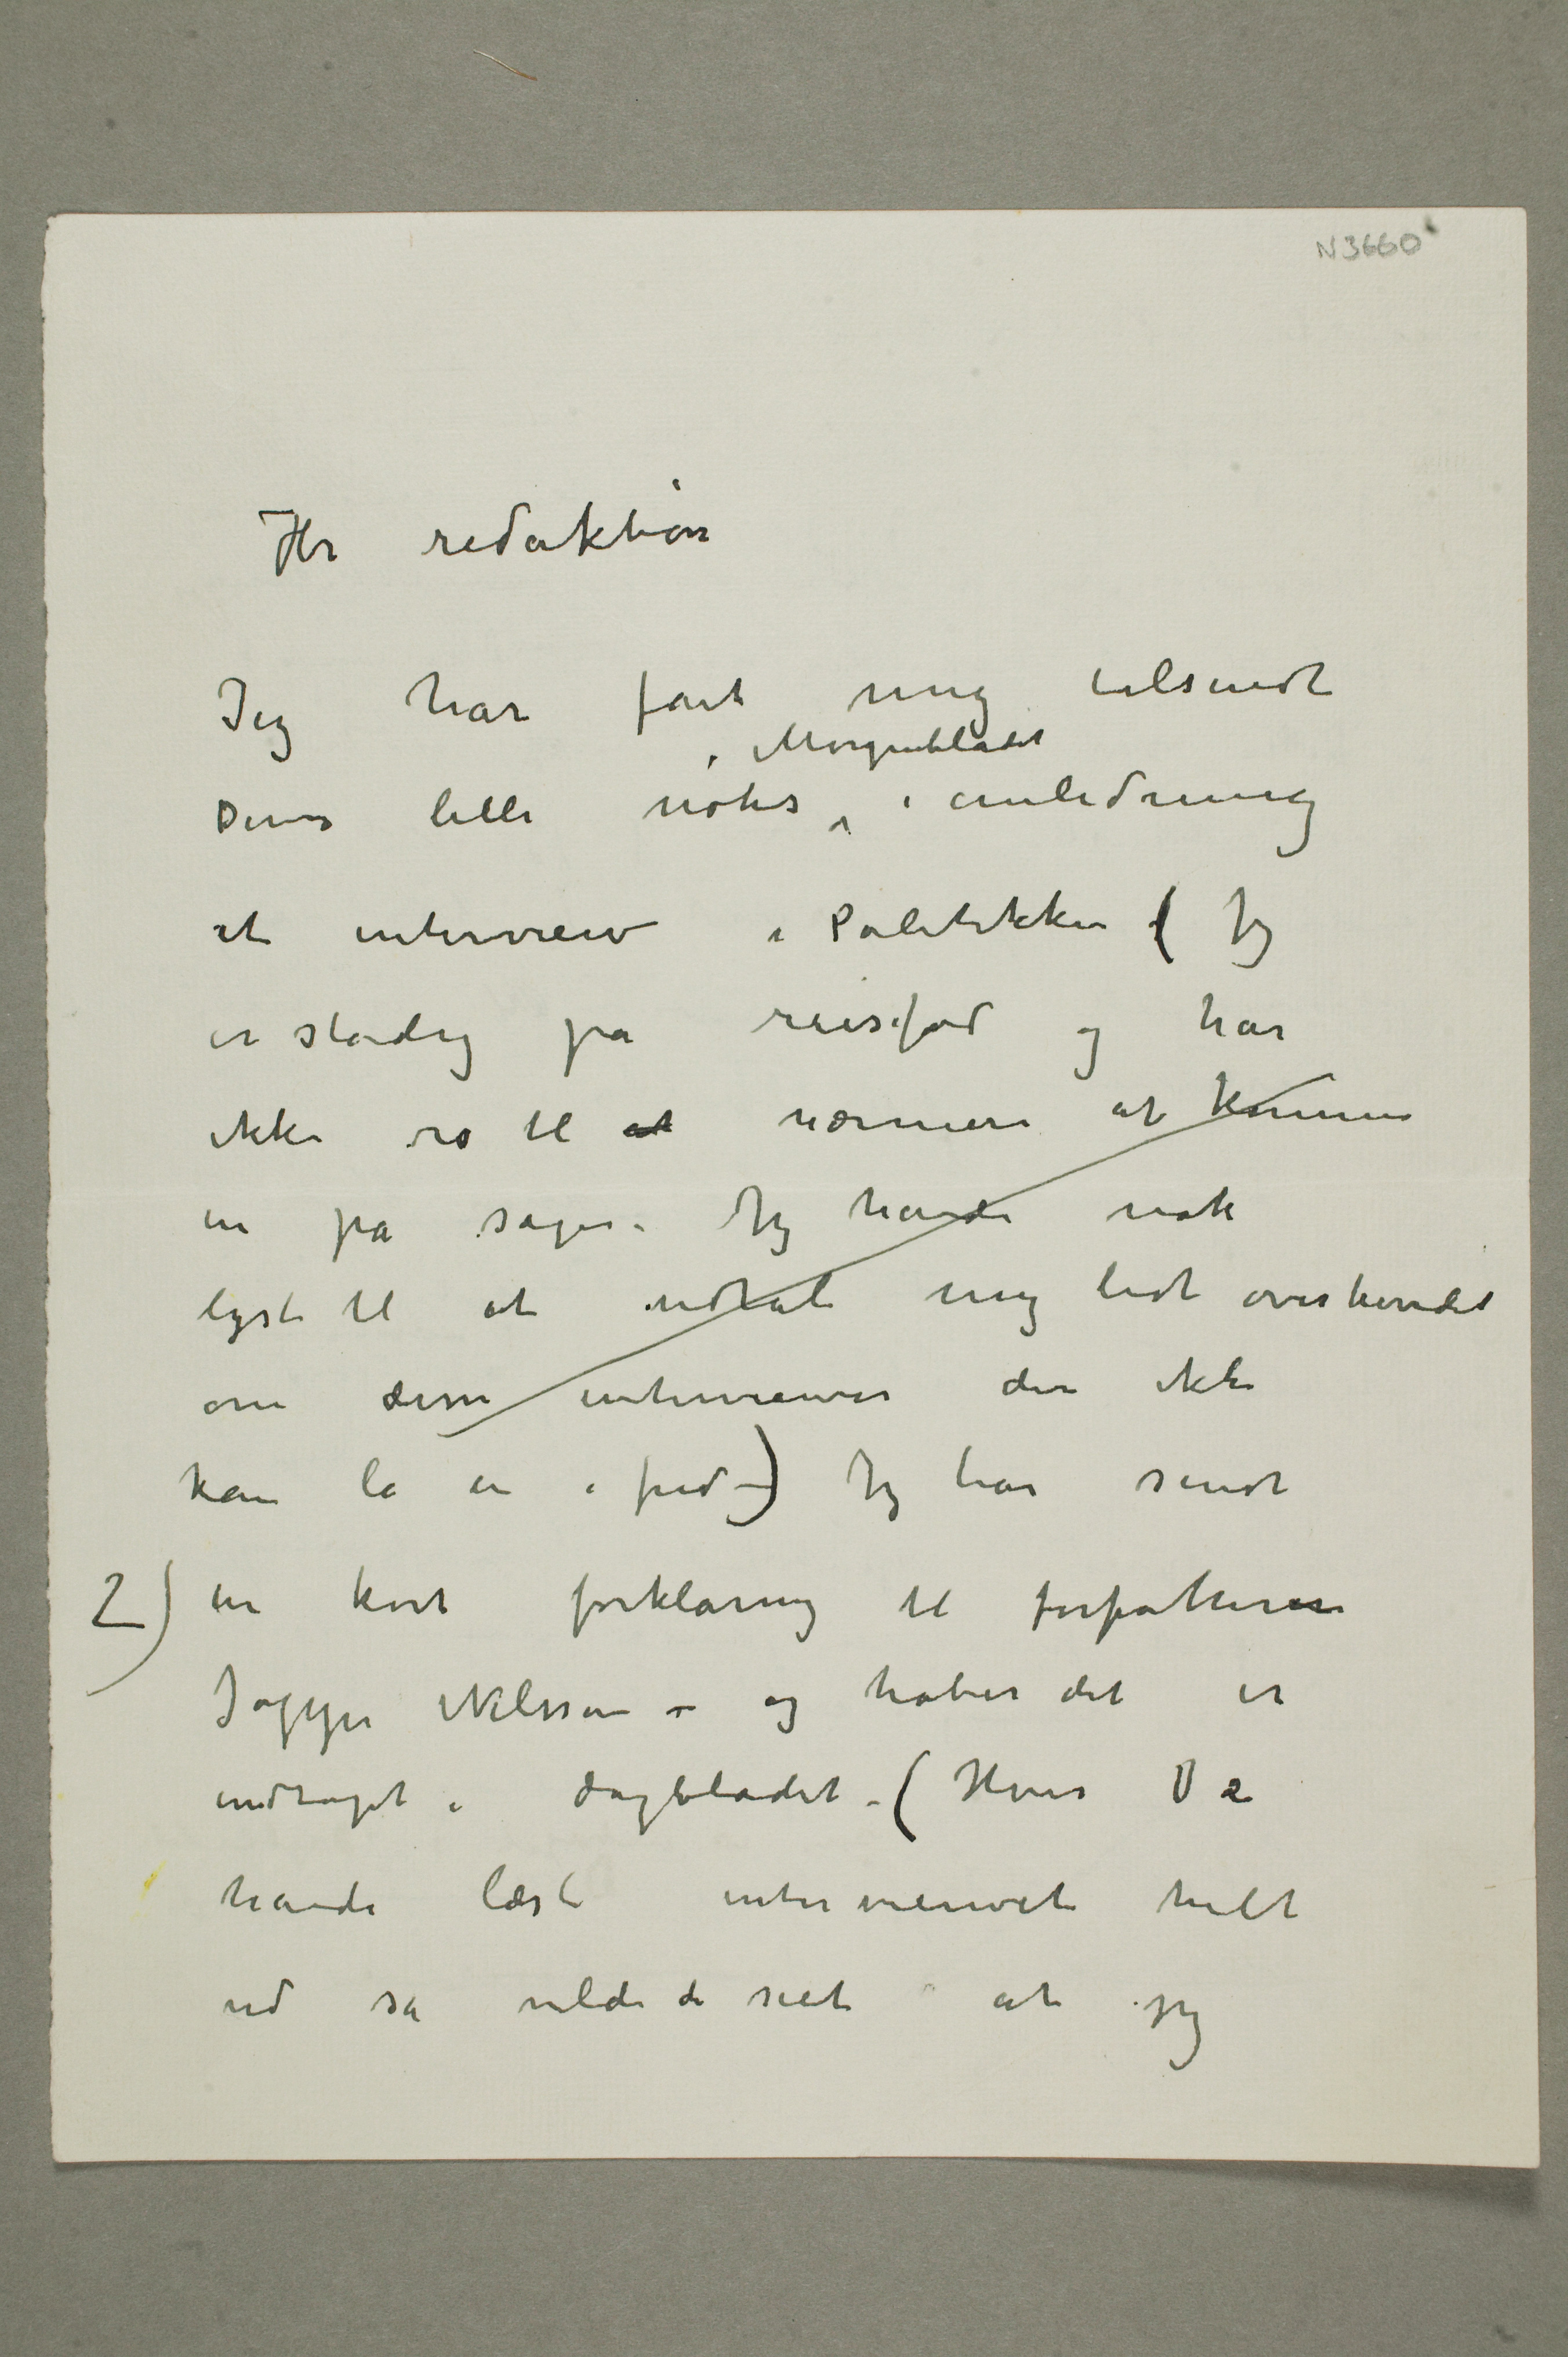 N3660
Hr redaktør
Jeg har fåt mig tilsendt
Deres lille notis i Morgenbladet i anledning
et interview i Politikken ( Jeg
er stadig på reisefod og har
ikke ro til at nærmere at komme
in på sagen. Jeg havde nok
lyst til at udtale mig lidt overhovedet
om disse interviewer der ikke
kan la en i fred –) Jeg har sendt
2) en kort forklaring til forfatteren
Jappe Nilssen – og håber det er
indtaget i dagbladet – ( Hvis De
havde læst interviewet helt
ud så vilde de seet at jeg